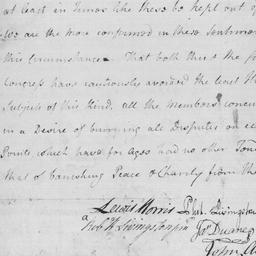 at least in Times like these be kept out of
we are the more confirmed in these Sentimen
this Circumstance That both this & the fo
Congress have cautiously avoided the least H
Subjects of this Kind, all the Members concur
in a Desire of burying all Disputes on ecl
Points which have for Ages had no other Ten
that of banishing Peace & Charity from the
Lewis Morris Phil. Livingston
Robt R Livingston junr Jas Duane
John A